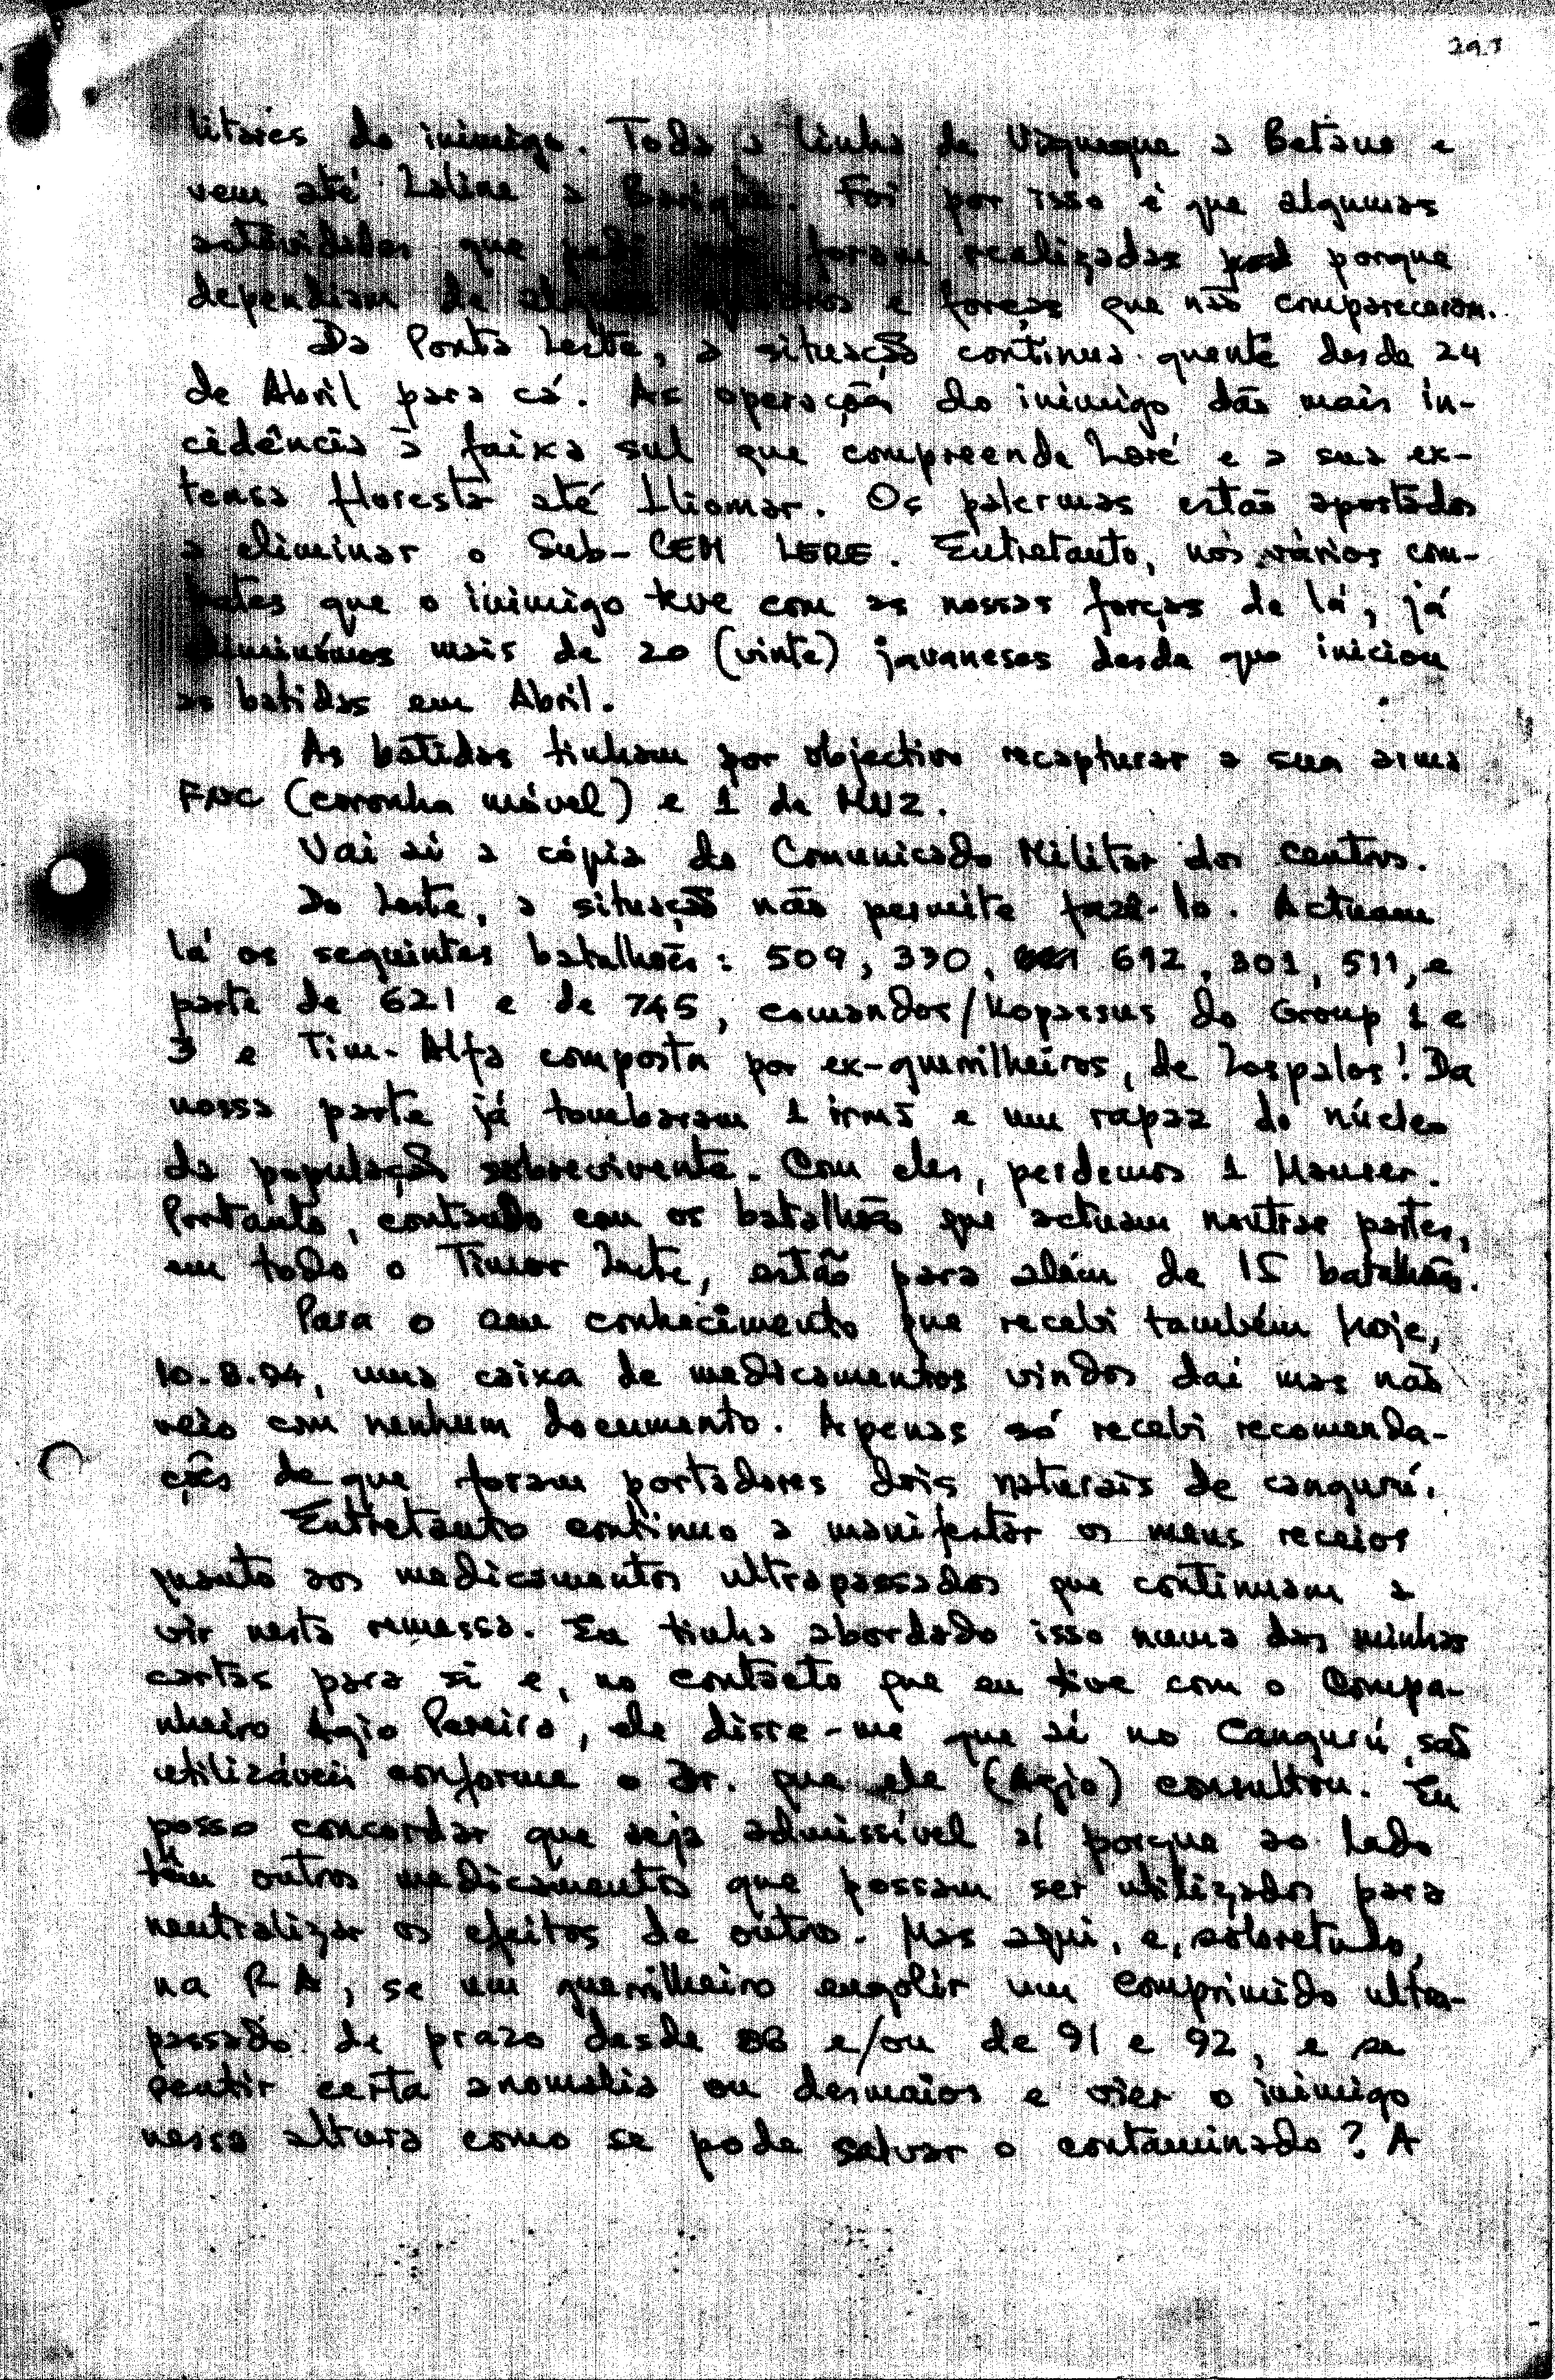 litares do inimigo. Toda a linha de Viqueque a Betano e
vem até Laline a Barique. Foi por isso é que algumas
actividades que pedi não foram realizadas porque
dependiam de e forças que não compareceram.
Da Ponta Leste, a situação continua quente desde 24
de Abril para cá. As operações do inimigo dão mais in-
cidência à faixa sul que compreende Loré e a sua ex-
tensa floresta até Iliomar. Os palermas estão apostados
a eliminar o Sub-CEM LERE. Entretanto, nos vários com-
bates que o inimigo teve com as nossas forças de lá, já
eliminámos mais de 20 (vinte) javaneses desde que iniciou
as batidas em Abril.
As batidas tinham por objectivo recapturar a sua arma
FNC (coronha móvel) e 1 de MU2.
Vai aí a cópia do Comunicado Militar dos Centros.
Do Leste, a situação não permite fazê-lo. Actuam
lá os seguintes batalhões: 509, 330, 612, 301, 511, e
parte de 621 e de 745, comandos/Kopassus do Group 1 e
3 e Tim-Alfa composta por ex-guerrilheiros, de Lospalos! Da
nossa parte já tombaram 1 irmã e um rapaz do núcleo
da população sobrevivente. Com eles, perdemos 1 Mauser.
Portanto, contando com os batalhões que actuam noutras partes,
em todo o Timor Leste, estão para além de 15 batalhões.
Para o seu conhecimento que recebi também hoje,
10.8.94, uma caixa de medicamentos vindos daí mas não
veio com nenhum documento. Apenas só recebi recomenda-
ções de que foram portadores dois naturais de cangurú.
Entretanto continuo a manifestar os meus receios
quanto aos medicamentos ultrapassados que continuam a
vir nesta remessa. Eu tinha abordado isso numa das minhas
cartas para si e, no contacto que eu tive com o Compa-
nheiro Agio Pereira, ele disse-me que aí no Cangurú, são
utilizáveis conforme o Dr. que ele (Agio) consultou. Eu
posso concordar que seja admissível aí porque ao lado
têm outros medicamentos que possam ser utilizados para
neutralizar os efeitos de outro. Mas aqui, e, sobretudo,
na RA, se um guerrilheiro engolir um comprimido ultra-
passado de prazo desde e/ou de 91 e 92, e se
sentir certa anomalia ou desmaios e vier o inimigo
nessa altura como se pode salvar o contaminado? A